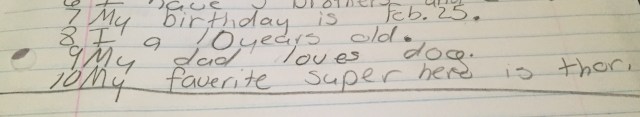 7 My birthday is Feb. 25.
8 I a 10 years old.
9 My dad loves dog.
10 My faverite super here is thor.